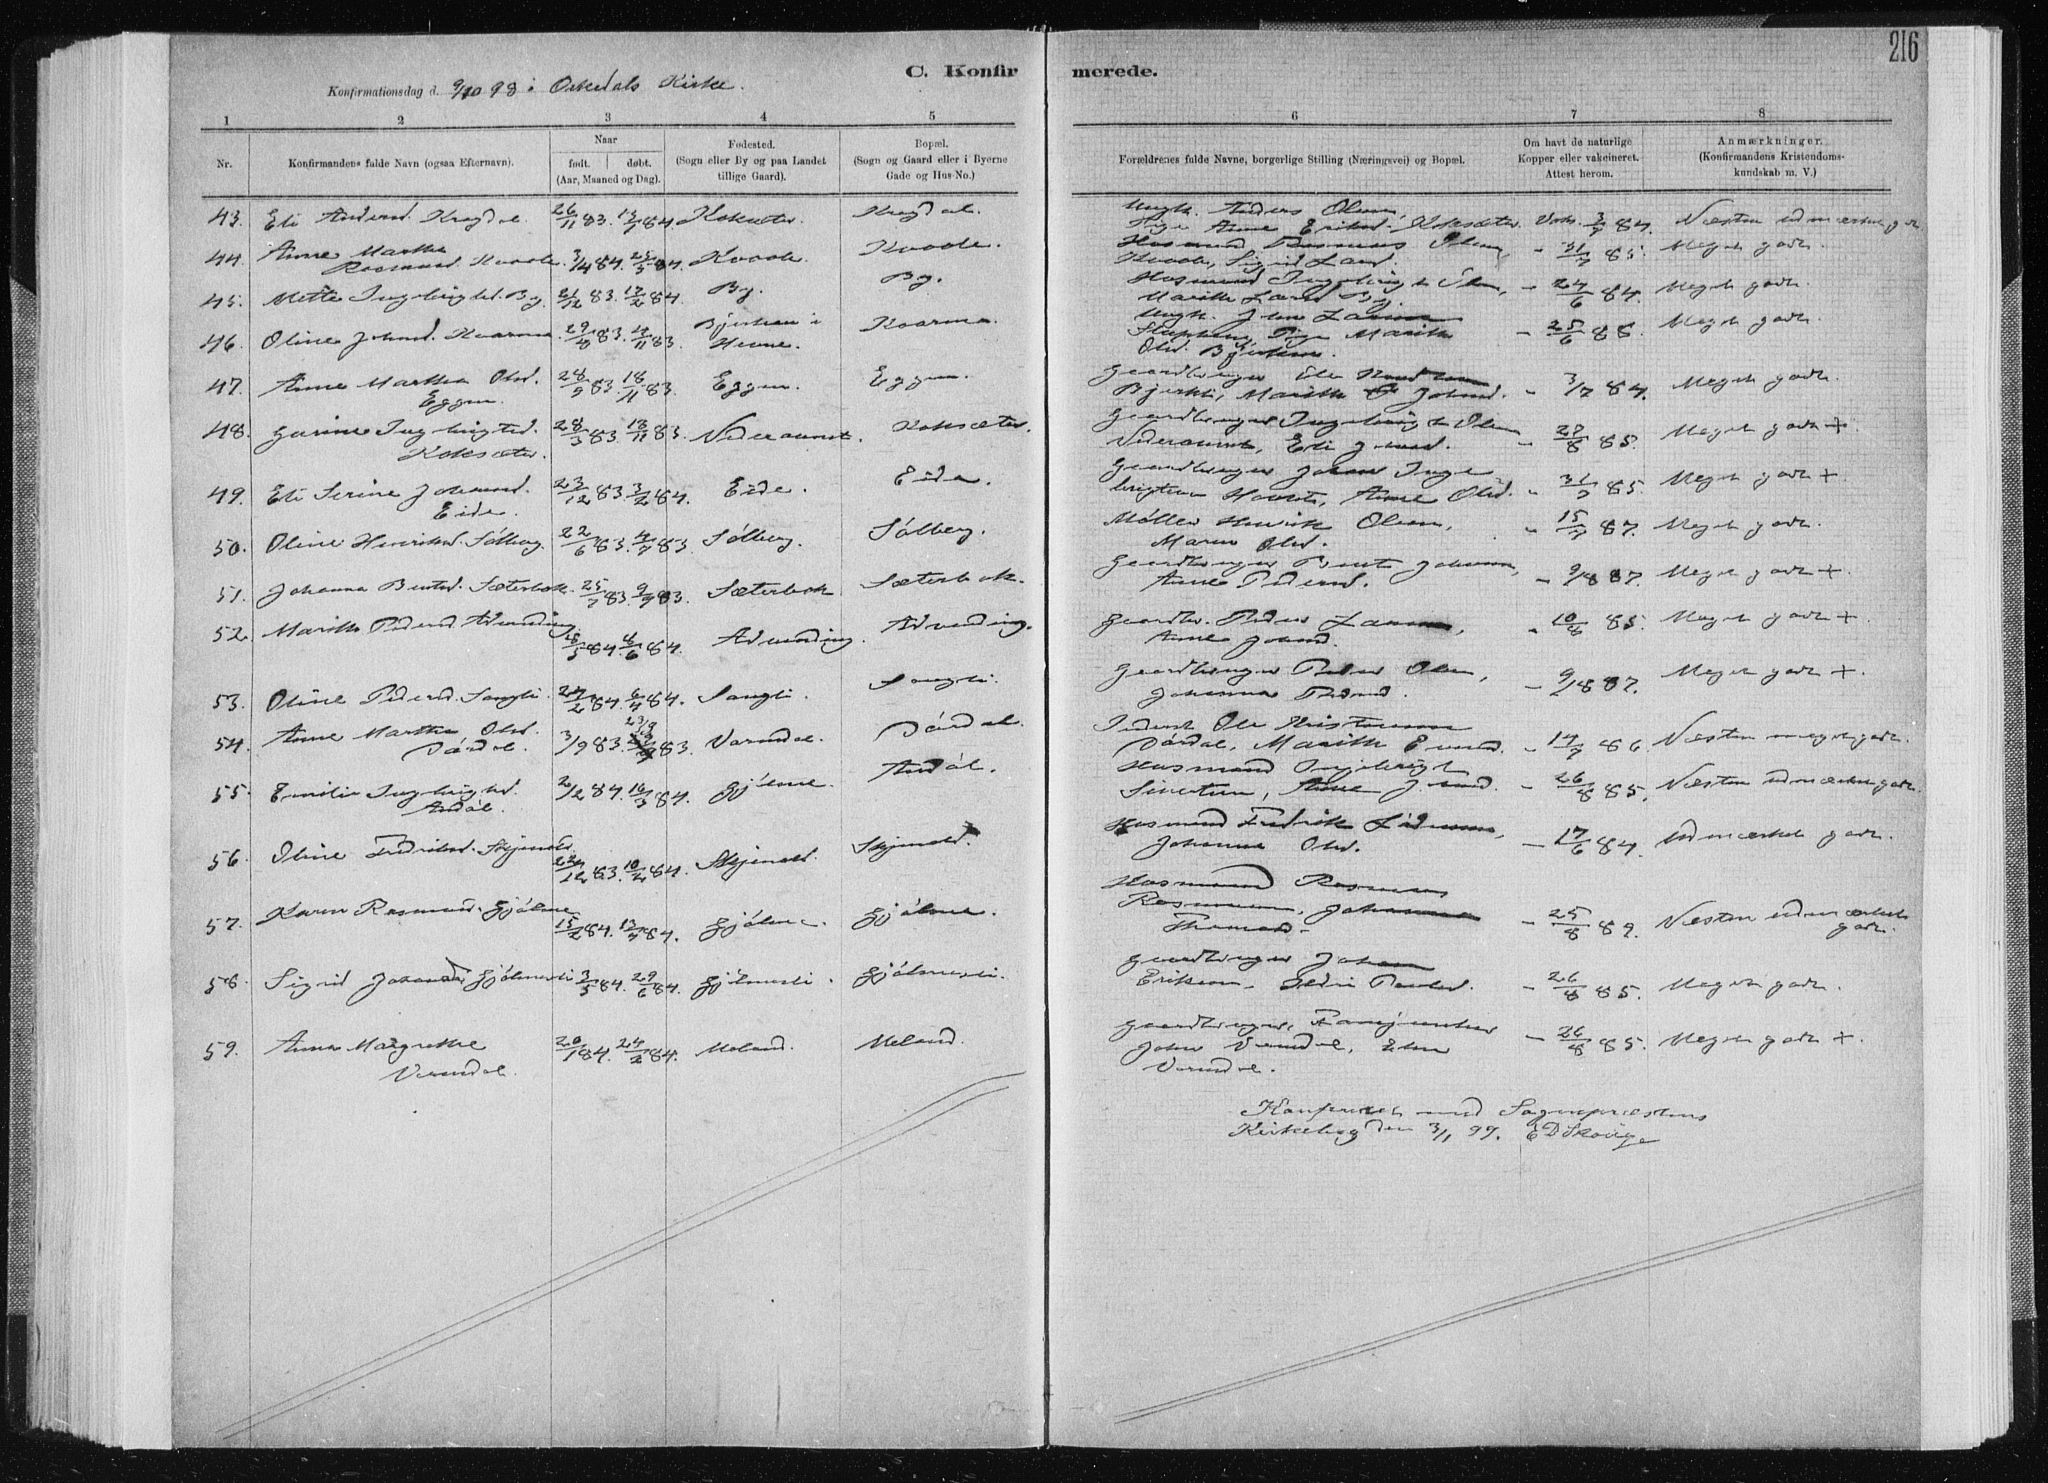 216
C. Konfirmerede.
Konfirmationsdag d. 9/10 98 i Orkedals Kirke.
1 2 3 4 5 6 7 8
Nr.
Konfirmandens fulde Navn (ogsaa Efternavn).
Naar
født. døbt.
(Aar, Maaned og Dag).
Fødested.
(Sogn eller By og paa Landet
tillige Gaard).
Bopæl.
(Sogn og Gaard eller i Byerne
Gade og Hus-No.)
Forældrenes fulde Navne, borgerlige Stilling (Næringsvei) og Bopæl.
Om havt de naturlige
Kopper eller vakcineret.
Attest herom.
Anmærkninger.
(Konfirmandens Kristendoms-
kundskab m. V.)
43. Eli Andersd. Krogdal. 26/11 83. 13/7 84 Koksæter. Krogdal. Ungk. Anders Olsen,
Pige Anne Eriksd. Koksæter. Vak. 3/7 84. Næsten udmærket godt.
44. Anne Martha
Rasmusd. Kvaale. 3/4 84. 25/5 84. Kvaale. Kvaale. Husmand Rasmus Olsen
Kvaale, Sigrid Larsd. - 31/7 85. Meget godt.
45. Mette Ingebrigtsd. By. 21/12 83. 17/2 84. By. By. Husmand Ingebrigt Olsen,
Marith Larsd. By. - 24/6 84. Meget godt.
46. Oline Johnsd. Kvarme. 29/9 83. 4/11 83. Bjerkan i
Hevne. Kvarme. Ungk. John Larsen
Pige Marith
Olsd. Bjerkan. - 25/6 88. Meget godt.
47. Anne Martha Olsd.
Eggen. 28/9 83. 18/11 83. Eggen. Eggen. Gaardbruger Ole
Marith Johnsd. - 3/7 84. Meget godt.
48. Gurine Ingebrigtsd.
Koksæter. 28/3 83. 18/11 83. Koksæter. Gaardbruger Ingebrigt Olsen
Eli - 27/8 85. Meget godt +.
49. Eli Serine Johansd.
Eide. 23/12 83. 3/2 84. Eide. Eide. Gaardbruger Johan Inge
brigtsen Anne Olsd. - 31/7 85. Meget godt +
50. Oline Henriksd. Sølberg. 22/6 83. 4/7 83. Sølberg. Sølberg. Møller Henrik Olsen,
Maren Olsd. - 15/7 87. Meget godt.
51. Johanna Bentsd. Sæterbak. 25/7 83. 9/9 83. Sæterbak Sæterbak. Gaardbruger Bent Johnsen,
Anne Pedersd. - 9/8 87. Meget godt +.
52. Marith Pedersd. Asbunding. 18/5 84. 4/6 84. Gaardbr. Peder Larsen,
Anne Johnsd. - 10/8 85. Meget godt +
53. Oline Pedersd. Songli. 24/2 84. 6/4 84. Songli. Songli. Gaardbruger Peder Olsen,
Johanna Pedersd. - 9/8 87. Meget godt +.
54. Anne Martha Olsd.
Dørdal. 3/9 83. 23/9 83. Varmdal. Dørdal. Inderst Ole Kristensen
Dørdal, Marith - 14/7 86. Næsten meget godt.
55. Emilie Ingebrigtsd.
Andøl. 2/2 84. 16/3 84. Gjølme. Andøl. Husmand Ingebrigt
Sivertsen, Anne Johnsd. - 26/8 85. Næsten udmærket godt.
56. Oline Fredriksd. Skjenald. 22/12 83. 10/2 84. Skjenald. Skjenald. Husmand Fredrik
Johanna Olsd. - 17/6 84. Udmærket godt.
57. Karen Rasmusd. Gjølme. 15/2 84. 13/4 84. Gjølme. Gjølme. Husmand Rasmus
Rasmussen, Johanna
Thomasd. - 25/8 89. Næsten udmærket
godt.
58. Sigrid Johansd. Gjølmesli 3/5 84. 29/6 84. Gjølmesli. Gjølmesli. Gaardbruger Johan
Eriksen, Paulsd. - 26/8 85. Meget godt.
59. Anna Margrethe
Varmdal. 20/1 84. 24/2 84. Meland. Meland. Gaardbruger,
John Varmdal,
Varmdal. - 26/8 85. Meget godt +.
Konfereret med Sognepræstens
Kirkebog den 3/1 99. E D Skauge